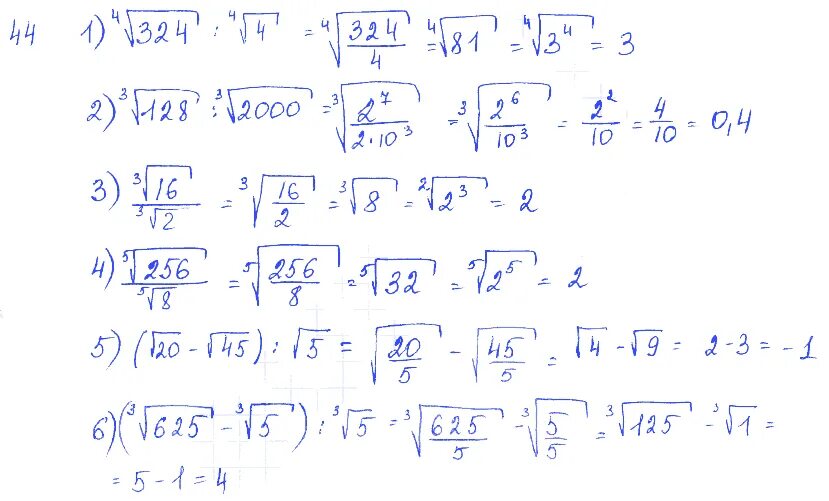 44 1) ⁴√324 : ⁴√4 = ⁴√(324/4) = ⁴√81 = ⁴√(3⁴) = 3
2) ³√128 : ³√2000 = ³√(2⁷/(2·10³)) = ³√(2⁶/10³) = 2²/10 = 4/10 = 0,4
3) ³√16/³√2 = ³√(16/2) = ³√8 = ²√(2³) = 2
4) ⁵√256/⁵√8 = ⁵√(256/8) = ⁵√32 = ⁵√(2⁵) = 2
5) (√20 - √45) : √5 = √(20/5) - √(45/5) = √4 - √9 = 2 - 3 = -1
6) (³√625 - ³√5) : ³√5 = ³√(625/5) - ³√(5/5) = ³√125 - ³√1 =
= 5 - 1 = 4